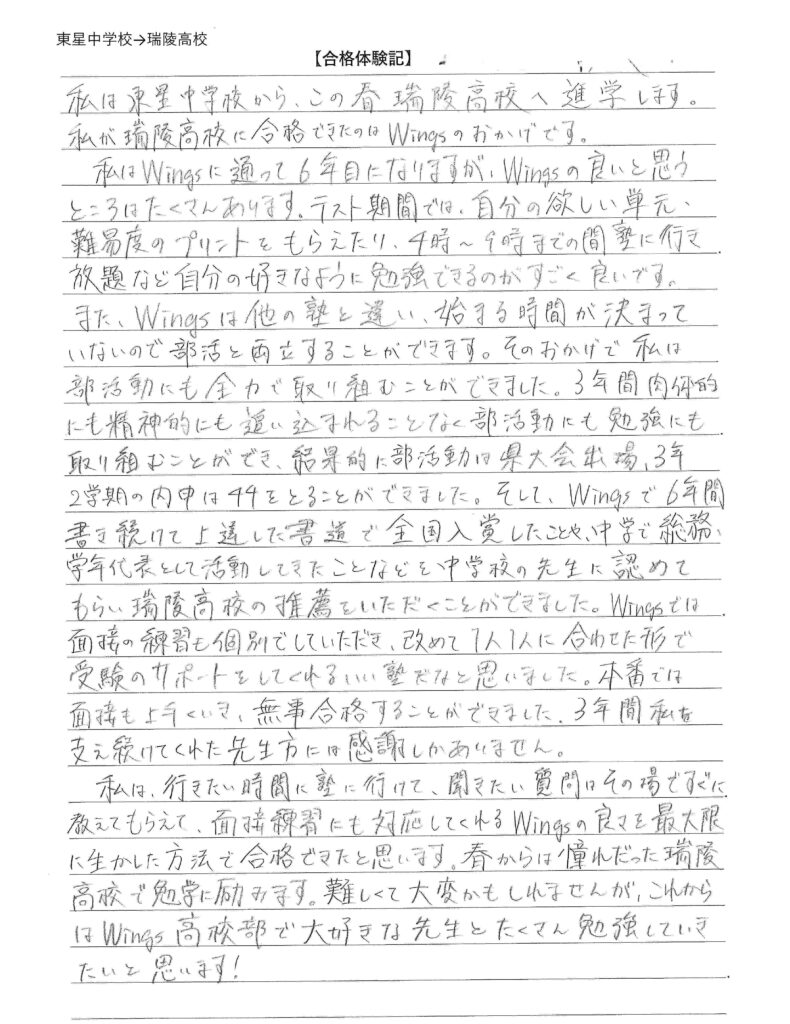 東星中学校→瑞陵高校
【合格体験記】
私は東星中学校から、この春瑞陵高校へ進学します。
私が瑞陵高校に合格できたのはWingsのおかげです。
私はWingsに通って6年目になりますが、Wingsの良いと思う
ところはたくさんあります。テスト期間では、自分の欲しい単元、
難易度のプリントをもらえたり、4時～9時までの間塾に行き
放題など自分の好きなように勉強できるのがすごく良いです。
また、Wingsは他の塾と違い、始まる時間が決まって
いないので部活と両立することができます。そのおかげで私は
部活動にも全力で取り組むことができました。3年間肉体的
にも精神的にも追い込まれることなく部活動にも勉強にも
取り組むことができ、結果的に部活動は県大会出場、3年
2学期の内申は44をとることができました。そして、Wingsで6年間
書き続けて上達した書道で全国入賞したことや、中学で総務、
学年代表として活動してきたことなどを中学校の先生に認めて
もらい瑞陵高校の推薦をいただくことができました。Wingsでは
面接の練習も個別でしていただき、改めて1人1人に合わせた形で
受験のサポートをしてくれるいい塾だなと思いました。本番では
面接も上手くいき、無事合格することができました。3年間私を
支え続けてくれた先生方には感謝しかありません。
私は、行きたい時間に塾に行けて、聞きたい質問はその場ですぐに
教えてもらえて、面接練習にも対応してくれるWingsの良さを最大限
に生かした方法で合格できたと思います。春からは憧れだった瑞陵
高校で勉学に励みます。難しくて大変かもしれませんが、これから
はWings高校部で大好きな先生とたくさん勉強していき
たいと思います!